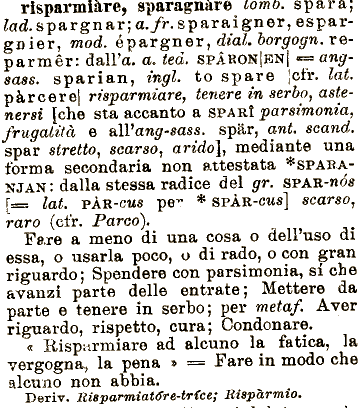 risparmiàre, sparagnàre lomb. sparà;
lad. spargnar; a. fr. sparaigner, espar-
gnier, mod. épargner, dial. borgogn. re-
parmêr: dall'a. a. ted. SPÂRON[EN] = ang-
sass. sparian, ingl. to spare [cfr. lat.
pàrcere] risparmiare, tenere in serbo, aste-
nersi [che sta accanto a SPARÎ parsimonia,
frugalità e all'ang-sass. spär, ant. scand.
spar stretto, scarso, arido], mediante una
forma secondaria non attestata *SPARA-
NJAN: dalla stessa radice del gr. SPAR-nós
[= lat. PÀR-cus per * SPÀR-cus] scarso,
raro (cfr. Parco).
Fare a meno di una cosa o dell'uso di
essa, o usarla poco, o di rado, o con gran
riguardo; Spendere con parsimonia, sì che
avanzi parte delle entrate; Mettere da
parte e tenere in serbo; per metaf. Aver
riguardo, rispetto, cura; Condonare.
« Risparmiare ad alcuno la fatica, la
vergogna, la pena » = Fare in modo che
alcuno non abbia.
Deriv. Risparmiatóre-tríce; Rispàrmio.